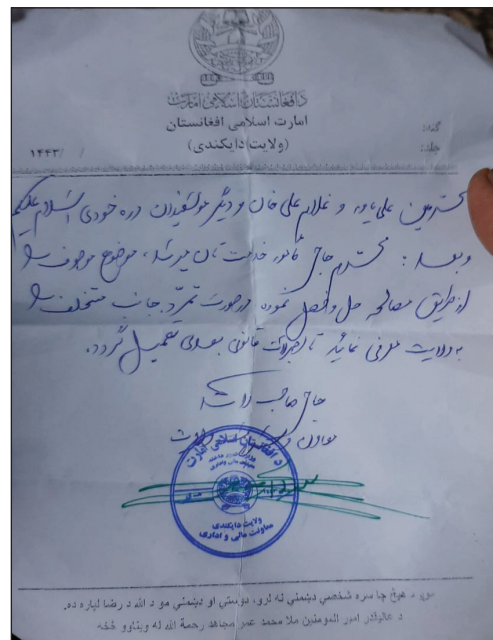 د افغانستان اسلامی امارت
امارت اسلامی افغانستان
(ولایت دایکندی)
گڼه:
جلد:
/ /۱۴۴۳
محترمین علی یاور و غلام علی خان و دیگر موسفیدان دره خودی السلام علیکم
وبعد: محترم حاجی خدمت تان میرسد، موضوع موصوف را
از طریق مصالحه حل و فصل نموده درصورت تمرد جانب متخلف را
به ولایت معرفی نمائید تا اجراآت قانونی بعدی تعمیل گردد.
حاجی صاحب راشد
معاون
د افغانستان اسلامی امارت
ولایت دایکندی
معاونت مالی و اداری
هیچا سره شخصي دښمني نه لرو، دوستي او دښمني مو د الله د رضا لپاره ده.
د عالیقدر امیر المومنین ملا محمد عمر مجاهد رحمة الله له ویناوو څخه